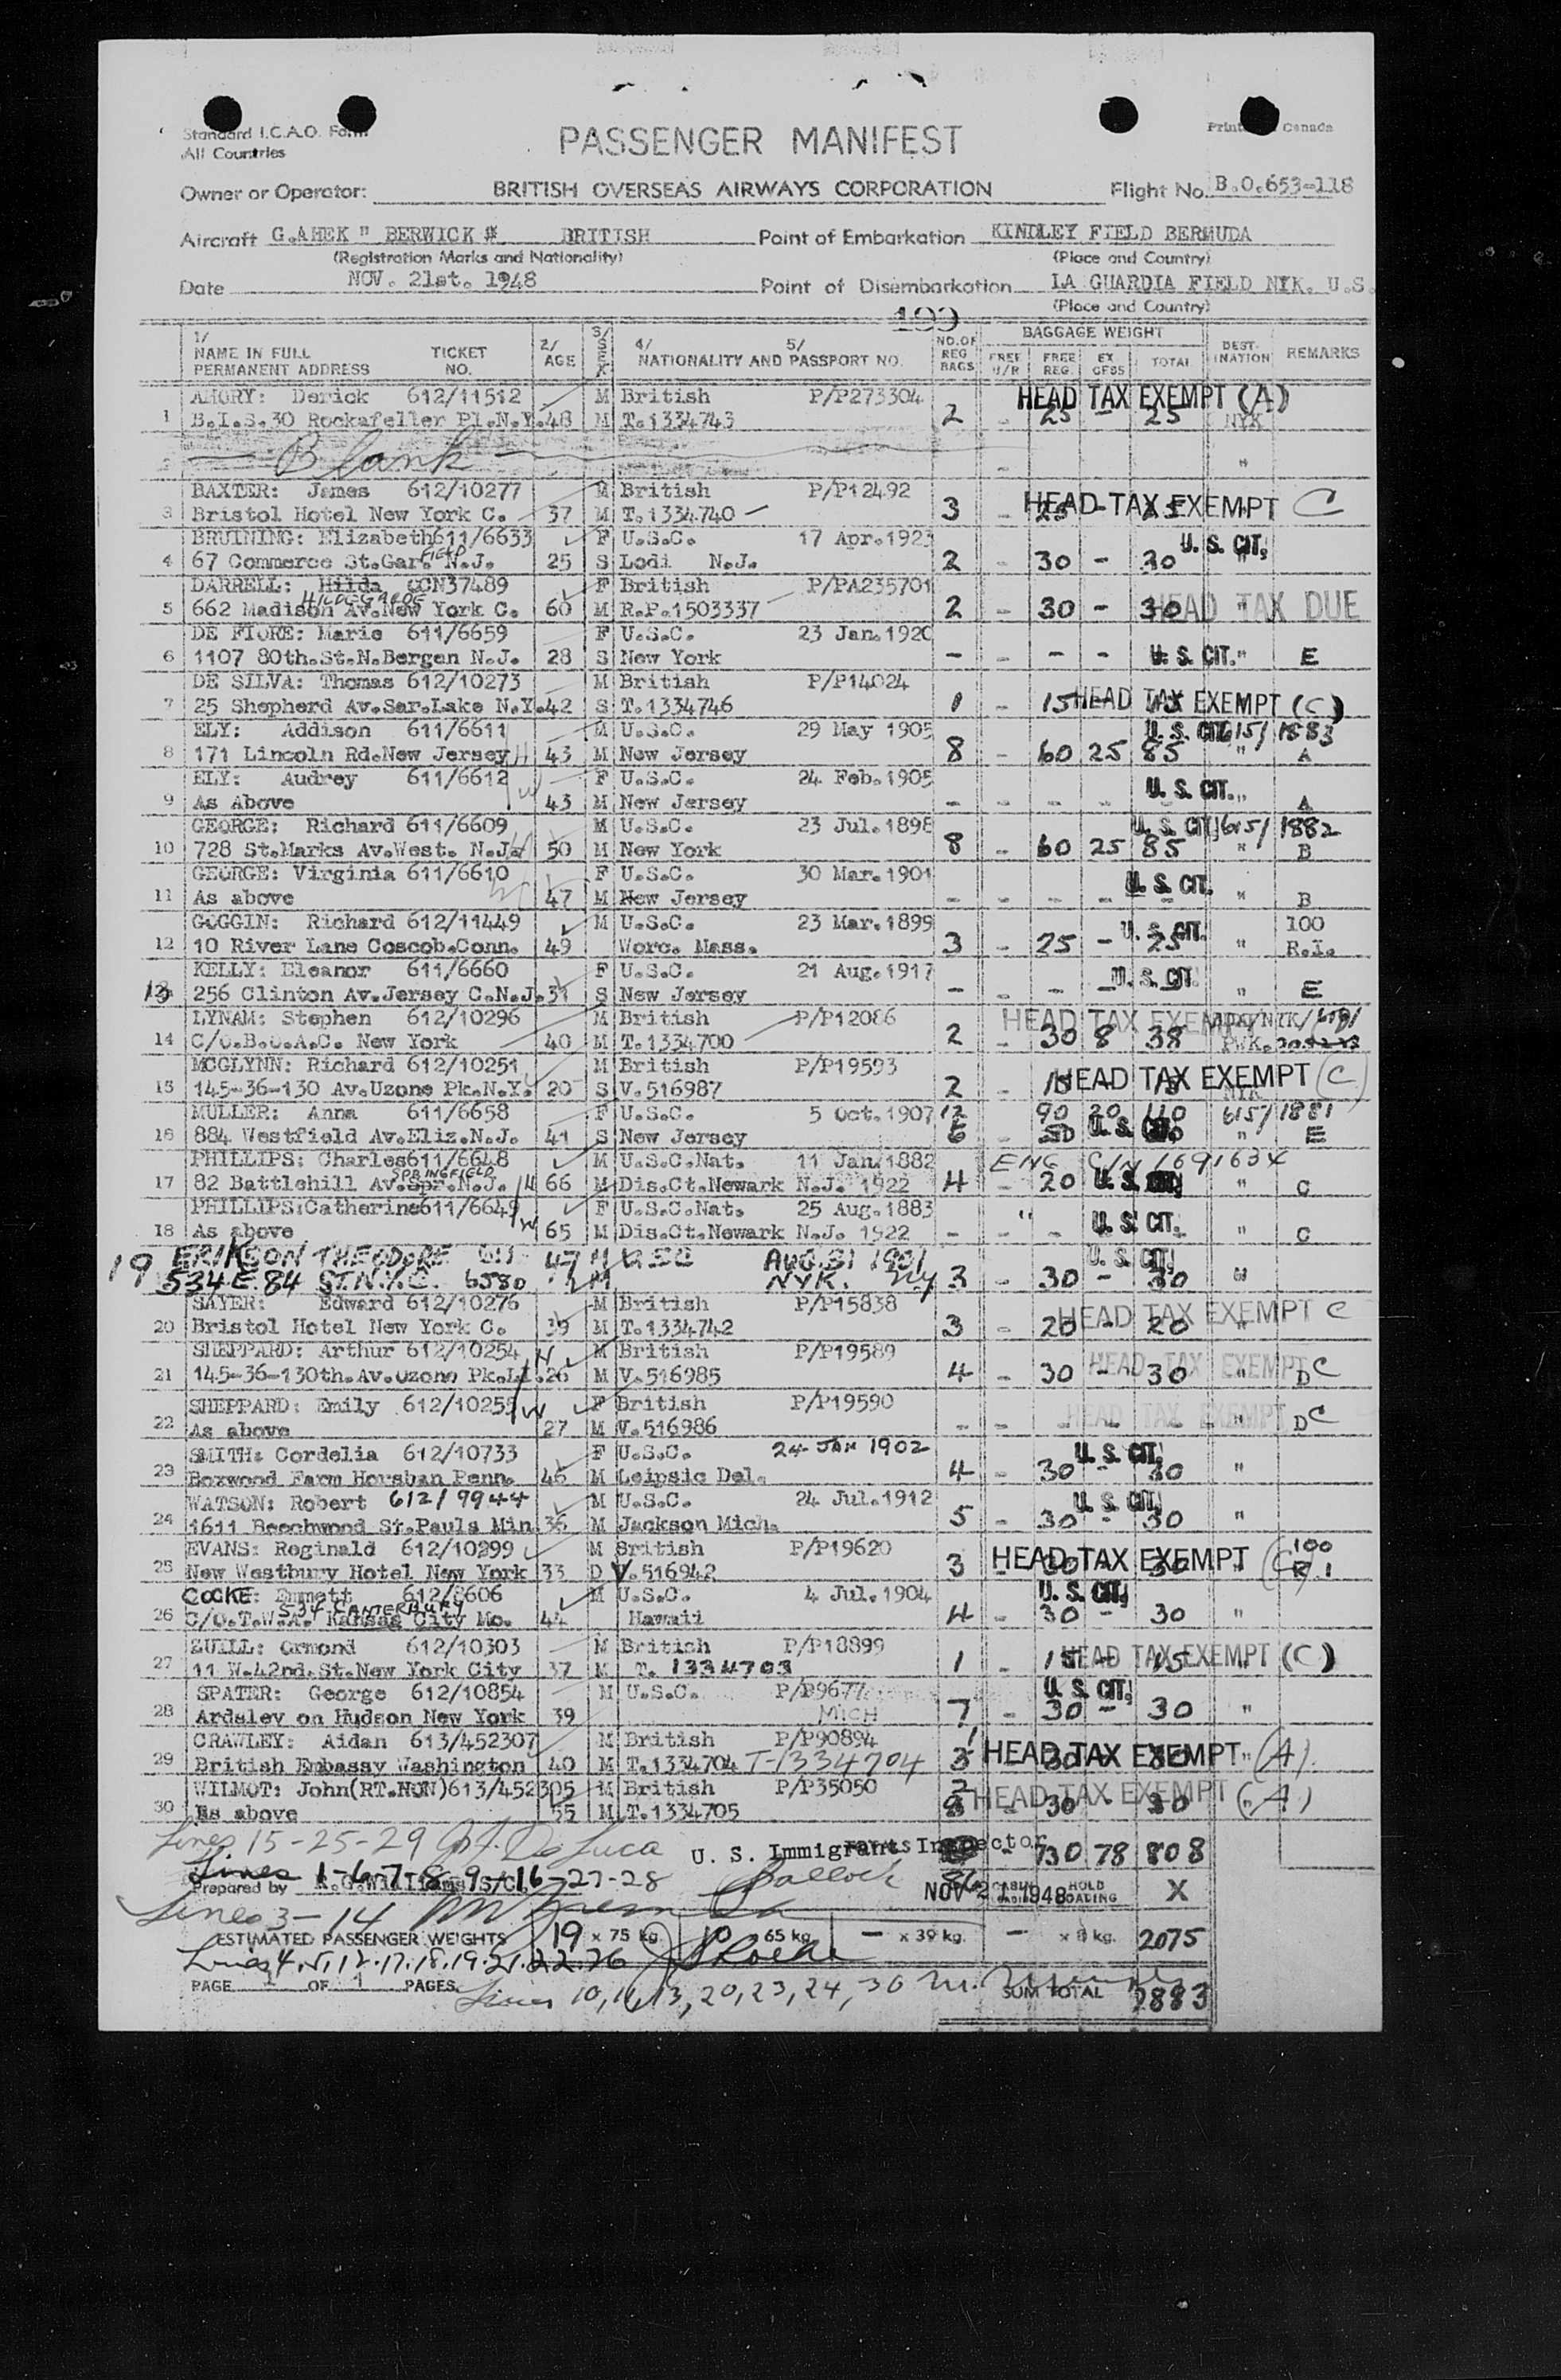 Standard I.C.A.O. Form
All Countries
PASSENGER MANIFEST
Printed Canada
Owner or Operator: BRITISH OVERSEAS AIRWAYS CORPORATION Flight No. B.O.653-118
Aircraft G.AHEK " BERWICK # BRITISH Point of Embarkation KINDLEY FIELD BERMUDA
(Registration Marks and Nationality) (Place and Country)
Date NOV. 21st. 1948 Point of Disembarkation LA GUARDIA FIELD NYK. U.S.
(Place and Country)
1/ NAME IN FULL PERMANENT ADDRESS TICKET NO. 2/ AGE 3/ SEX 4/ 5/ NATIONALITY AND PASSPORT NO. NO.OF REG BAGS BAGGAGE WEIGHT FREE U/R FREE REG. EX CESS TOTAL DESTINATION REMARKS
AMORY: Derick 612/11512 M British P/P273304 HEAD TAX EXEMPT (A)
1 B.I.S.30 Rockafeller Pl.N.Y. 48 M T.1334743 2 - 25 - 25 NYK
2 Blank - "
BAXTER: James 612/10277 M British P/P12492
3 Bristol Hotel New York C. 37 M T.1334740 3 - 25 - 25 HEAD TAX EXEMPT C
BRUINING: Elizabeth 611/6633 F U.S.C. 17 Apr.1923 U. S. CIT.
4 67 Commerce St.Gar.FIELD N.J. 25 S Lodi N.J. 2 - 30 - 30 "
DARRELL: Hilda CCN37489 F British P/PA235701
HILDEGARDE
5 662 Madison Av.New York C. 60 M R.P.1503337 2 - 30 - 30 " HEAD TAX DUE
DE FIORE: Marie 611/6659 F U.S.C. 23 Jan.1920
6 1107 80th.St.N.Bergen N.J. 28 S New York - - - - U. S. CIT. " E
DE SILVA: Thomas 612/10273 M British P/P14024
7 25 Shepherd Av.Sar.Lake N.Y. 42 S T.1334746 1 - 15 - 15 HEAD TAX EXEMPT (C)
ELY: Addison 611/6611 M U.S.C. 29 May 1905 U. S. CIT. 615/1883
8 171 Lincoln Rd.New Jersey H 43 M New Jersey 8 - 60 25 85 " A
ELY: Audrey 611/6612 W F U.S.C. 24 Feb.1905
9 As Above 43 M New Jersey - - - - U. S. CIT. " A
GEORGE: Richard 611/6609 M U.S.C. 23 Jul.1898 U. S. CIT. 615/1882
10 728 St.Marks Av.West. N.J. H 50 M New York 8 - 60 25 85 " B
GEORGE: Virginia 611/6610 F U.S.C. 30 Mar.1901 U. S. CIT.
11 As above W 47 M New Jersey - - - - - " B
GOGGIN: Richard 612/11449 M U.S.C. 23 Mar.1899 U. S. CIT. 100
12 10 River Lane Coscob.Conn. 49 Worc. Mass. 3 - 25 - 25 " R.I.
KELLY: Eleanor 611/6660 F U.S.C. 21 Aug.1917 U. S. CIT.
13 256 Clinton Av.Jersey C.N.J. 31 S New Jersey - - - - " E
LYNAM: Stephen 612/10296 M British P/P12086 HEAD TAX EXEMPT
14 C/O.B.O.A.C. New York 40 M T.1334700 2 - 30 8 38
MCGLYNN: Richard 612/10251 M British P/P19593 HEAD TAX EXEMPT (C)
15 145-36-130 Av.Uzone Pk.N.Y. 20 S V.516987 2 - 15 - 15 NYK
MULLER: Anna 611/6658 F U.S.C. 5 Oct.1907 12 90 20 110 615/1881
16 884 Westfield Av.Eliz.N.J. 41 S New Jersey 6 - U. S. CIT. " E
PHILLIPS: Charles 611/6648 M U.S.C.Nat. 11 Jan.1882 ENG C/N 1691634
SPRINGFIELD
17 82 Battlehill Av.Spr.N.J. H 66 M Dis.Ct.Newark N.J. 1922 4 - 20 U. S. CIT. " C
PHILLIPS:Catherine 611/6649 F U.S.C.Nat. 25 Aug.1883
18 As above W 65 M Dis.Ct.Newark N.J. 1922 - - - U. S. CIT. - " C
19 ERIKSON THEODORE 611 47 M USC AUG. 31 1901 U. S. CIT.
534 E. 84 ST. N.Y.C. 6580 M NYK. NY 3 - 30 - 30 "
SAYER: Edward 612/10276 M British P/P15838 HEAD TAX EXEMPT C
20 Bristol Hotel New York C. 39 M T.1334742 3 - 20 - 20 "
SHEPPARD: Arthur 612/10254 H M British P/P19589 HEAD TAX EXEMPT
21 145-36-130th.Av.Uzone Pk.LI. 26 M V.516985 4 - 30 - 30 " D C
SHEPPARD: Emily 612/10255 W F British P/P19590 HEAD TAX EXEMPT
22 As above 27 M V.516986 - - - - - " D C
SMITH: Cordelia 612/10733 F U.S.C. 24 JAN 1902 U. S. CIT.
23 Boxwood Farm Horshan Penn. 46 M Leipsic Del. 4 - 30 - 30 "
WATSON: Robert 612/9944 M U.S.C. 24 Jul.1912 U. S. CIT.
24 1611 Beechwood St.Pauls Min. 36 M Jackson Mich. 5 - 30 - 30 "
EVANS: Reginald 612/10299 M British P/P19620 HEAD TAX EXEMPT (C) 100
25 New Westbury Hotel New York 33 D V.516942 3 - 30 - 30 " R.I
COCKE: Emmett 612/8606 M U.S.C. 4 Jul.1904 U. S. CIT.
534 CANTERBURY
26 C/O.T.W.A. Kansas City Mo. 44 Hawaii 4 - 30 - 30 "
ZUILL: Ormond 612/10303 M British P/P18899 HEAD TAX EXEMPT (C)
27 11 W.42nd.St.New York City 37 M T. 1334703 1 - 15 - 15 "
SPATER: George 612/10854 M U.S.C. P/P9677 U. S. CIT.
28 Ardsley on Hudson New York 39 MICH 7 - 30 - 30 "
CRAWLEY: Aidan 613/452307 M British P/P90894 1
29 British Embassy Washington 40 M T.1334704 T-1334704 3 HEAD TAX EXEMPT 30 - 30 " (A)
WILMOT: John(RT.HON)613/452305 M British P/P35050 2 HEAD TAX EXEMPT (A)
30 As above 55 M T.1334705 - 30 - 30 "
Lines 15-25-29 De Luca U. S. Immigrants Inspector - 730 78 808
Lines 1-6-7-8-9-16-27-28 Balloch
Prepared by NOV 21 1948 CABIN LOADING HOLD LOADING X
Lines 3-14
ESTIMATED PASSENGER WEIGHTS 19 x 75 kg. 10 65 kg. - x 39 kg. - x 8 kg. 2075
Lines 4.5.12.17.18.19.21.22.26
PAGE 1 OF 1 PAGES.
Lines 10, 11, 13, 20, 23, 24, 30 M. SUM TOTAL 2883